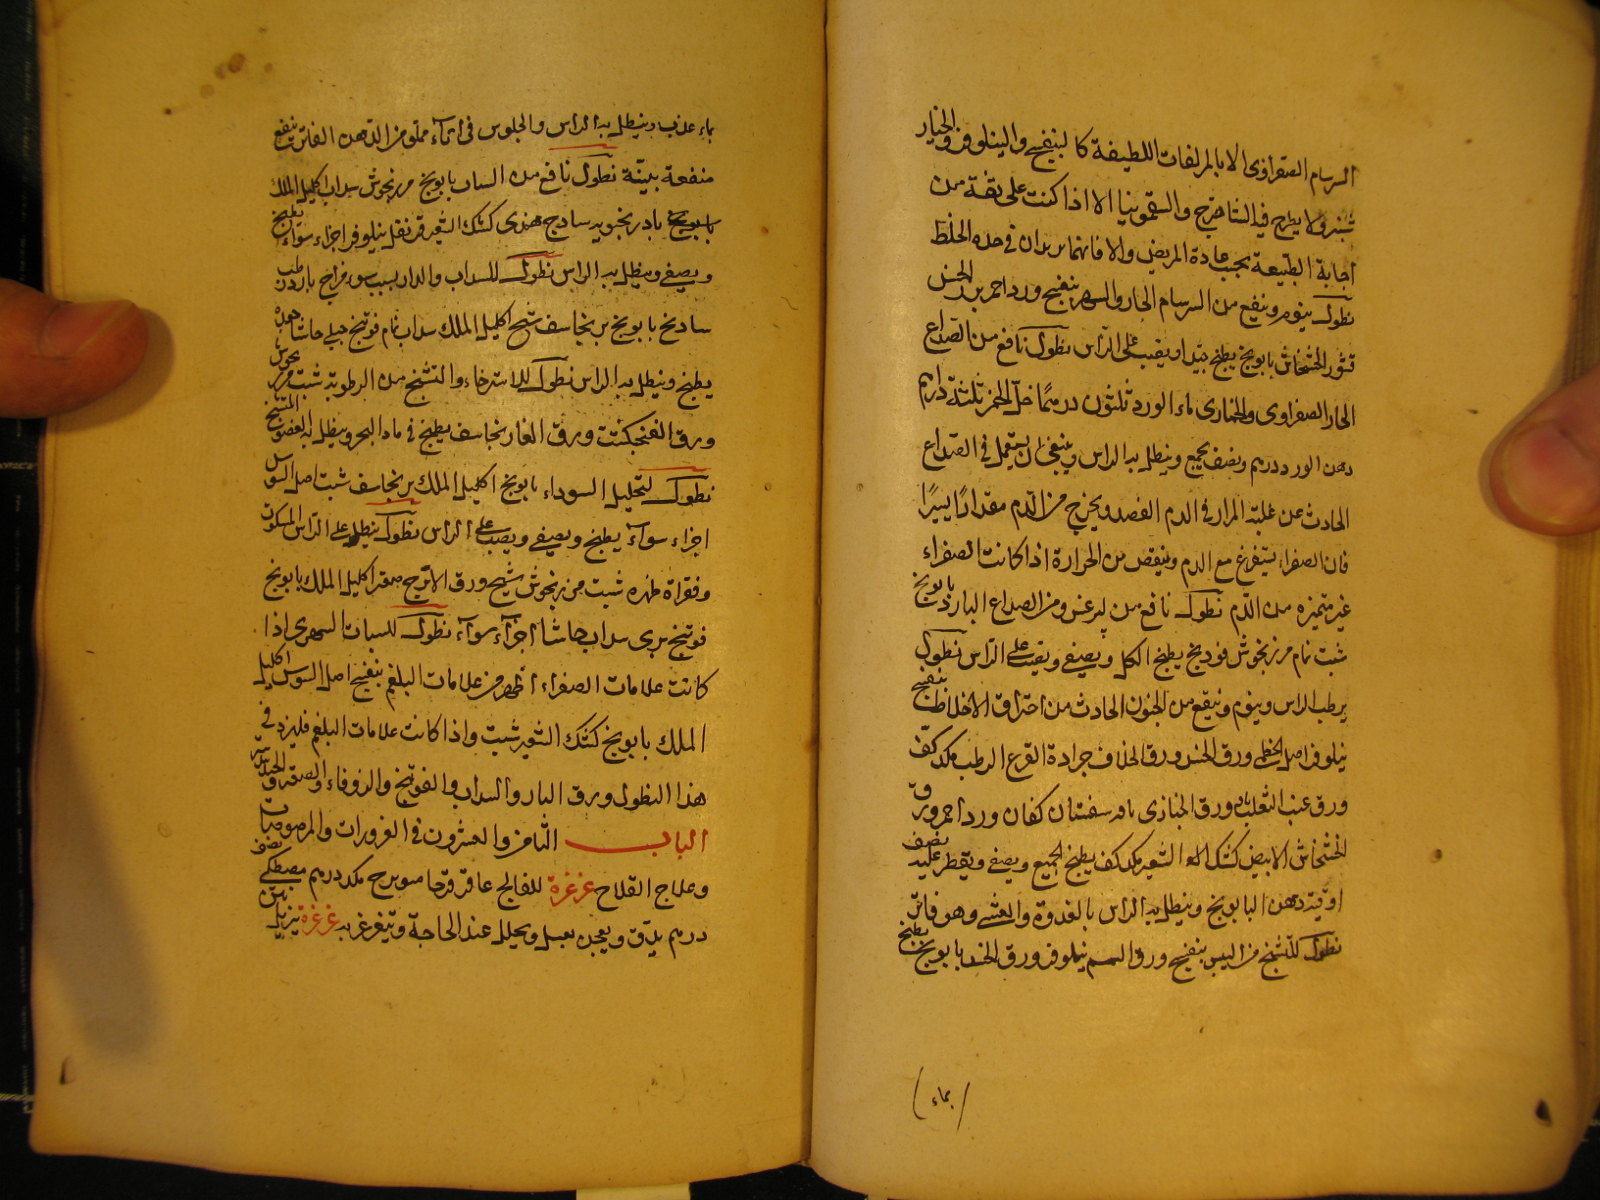 السرسام الصفراوى الا بالمزلقات اللطيفة كالبنفسج والنيلوفر والخيار
شنبر ولا يطرح فيه الشاهترج والسقمونيا الا اذا كنت على ثقة من
اجابة الطبيعة بحسب عادة المريض والا فانهما يزيدان في حدة الخلط
نطول ينوم وينفع من السرسام الحار والسهر بنفسج ورد احمر بزر الخس
قشور الخشخاش بابونج يطبخ جيدا ويصب على الراس نطول نافع من الصداع
الحار الصفراوى والخمارى ماء الورد ثلثون درهما خل الخمر ثلثة دراهم
دهن الورد درهم ونصف يجمع وينطل به الراس وينبغى ان يستعمل في الصداع
الحادث عن غلبة المرار في الدم الفصد ويخرج من الدم مقدارا يسيرا
فان الصفراء يستفرغ مع الدم وينقص من الحرارة اذا كانت الصفراء
غير متميزه من الدم نطول نافع من ليثرغس ومن الصداع البارد بابونج
شبت نمام مرزنجوش فودنج يطبخ الكل ويصفى ويصب على الراس نطول
يرطب الراس وينوم وينفع من الجنون الحادث من احتراق الاخلاط بنفسج
نيلوفر اصل الخطمى ورق الخس ورق الخلاف جرادة القرع الرطب مكد كف
ورق عنب الثعلب ورق الخبازى باقه سفستان كفان ورد احمر ورق
الخشخاش الابيض كشك الشعير مكد كف يطبخ الجميع ويصفى ويقطر عليه نصف
اوقية دهن البابونج وينطل به الراس بالغدوة والعشى وهو فاتر
نطول للتشنج من اليبس بنفسج ورق السمسم نيلوفر ورق الخس بابونج يطبخ
بماء
بماء عذب وينطل به الراس والجلوس في اناء مملو من الدهن الفاتر ينفع
منفعة بينة نطول نافع من السبات بابونج مرزنجوش سداب اكليل الملك
بابونج بادرنجبويه سادج هندى كشك الشعير قرنفل نيلوفر اجزاء سواء يطبخ
ويصفى وينطل به الراس نطول للسداب والدوار بسبب سوء مزاج بارد رطب
سادنج بابونج برنجاسف شيح اكليل الملك سداب نمام فوتنج جبلى حاشا جعده
يطبخ وينطل به الراس نطول للاسترخاء والتشنج من الرطوبة شبت مرزنجوش
ورق الفنجنكشت ورق الغار برنجاسف يطبخ في ماء البحر وينطل به العضو المتشنج
نطول لتحليل السوداء بابونج اكليل الملك برنجاسف شبت اصل السوس
اجزاء سواء يطبخ ويصفى ويصب على الراس نطول ينطل على الراس المسكوت
وفقراة ظهره شبت مرزنجوش شيح ورق الاترج صعتر اكليل الملك بابونج
فوتنج برى سداب حاشا اجزاء سواء نطول للسبات السهرى اذا
كانت علامات الصفراء اظهر من علامات البلغم بنفسج اصل السوس اكليل
الملك بابونج كشك الشعير شبت واذا كانت علامات البلغم فليزد في
هذا النطول ورق الغار والسداب والفوتنج والزوفاء والصعتر
الباب الثامن والعشرون في الغرورات والمضوضات
وعلاج القلاح غرغرة للفالج عاقرقرحا ميويزج مكد درهم مصطكى نصف
درهم يدق ويعجن بعسل ويحلل عند الحاجة ويتغرغر به غرغرة تزيل